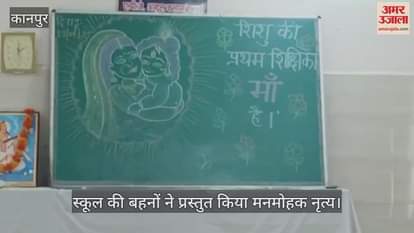 कानपुर
अमर उजाला
शिशु की
प्रथम शिक्षिका
माँ
है।
स्कूल की बहनों ने प्रस्तुत किया मनमोहक नृत्य।